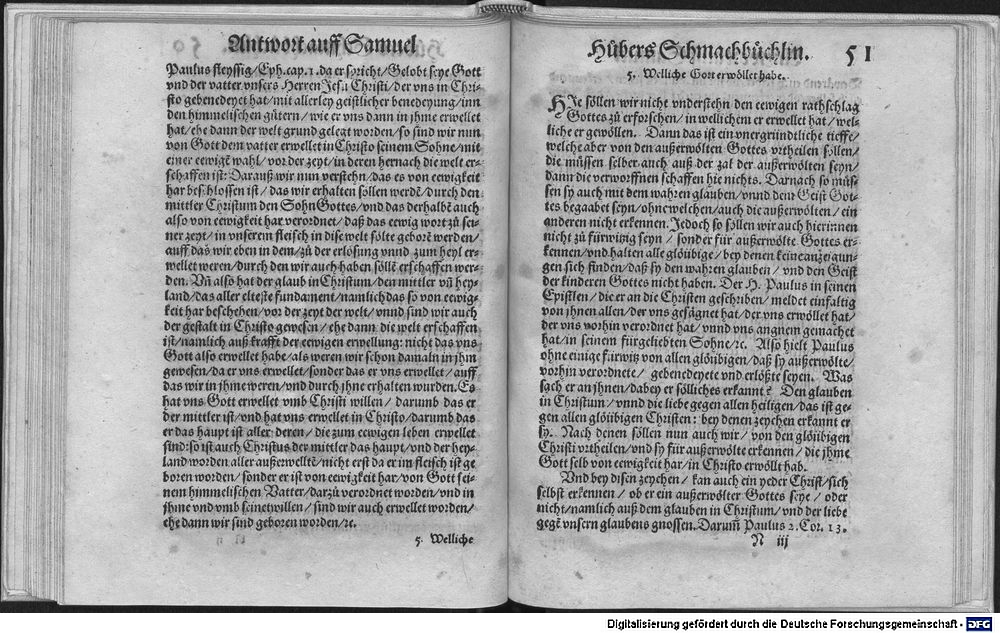 Antwort auff Samuel
Paulus fleyssig/Eph.cap.1.da er spricht/Gelobt seye Gott
vnd der vatter vnsers Herren Jesu Christi/der vns in Chri-
sto gebenedeyet hat/mit allerley geistlicher benedeyung/inn
den himmelischen gütern/wie er vns dann in jhme erwellet
hat/ehe dann der welt grund gelegt worden/so sind wir nun
von Gott dem vatter erwellet in Christo seinem Sohne/mit
einer eewigē wahl/vor der zeyt/in deren hernach die welt er-
schaffen ist: Darauß wir nun verstehn/das es von eewigkeit
har beschlossen ist/das wir erhalten söllen werdē/durch den
mittler Christum den Sohn Gottes/vnd das derhalbē auch
also von eewigkeit har verordnet/daß das eewig wort zů sei-
ner zeyt/in vnserem fleisch in dise welt sölte geborē werden/
auff das wir eben in dem/zů der erlösung vnnd zum heyl er-
wellet weren/durch den wir auch haben söllē erschaffen wer-
den. Vñ also hat der glaub in Christum/den mittler vñ hey-
land/das aller elteste fundament/namlich das so von eewig-
keit har beschehen/vor der zeyt der welt/vnnd sind wir auch
der gestalt in Christo gewesen/ehe dann die welt erschaffen
ist/namlich auß krafft der eewigen erwellung: nicht das vns
Gott also erwellet habe/als weren wir schon damaln in jhm
gewesen/da er vns erwellet/sonder das er vns erwellet/auff
das wir in jhme weren/vnd durch jhne erhalten wurden.Es
hat vns Gott erwellet vmb Christi willen/ darumb das er
der mittler ist/vnd hat vns erwellet in Christo/darumb das
er das haupt ist aller deren/die zum eewigen leben erwellet
sind:so ist auch Christus der mittler das haupt/vnd der hey-
land worden aller außerwelltē/nicht erst da er im fleisch ist ge
boren worden/sonder er ist von eewigkeit har/von Gott sei-
nem himmelischen Vatter/darzů verordnet worden/vnd in
jhme vnd vmb seinetwillen/sind wir auch erwellet worden/
ehe dann wir sind geboren worden/ꝛc.
5. Welliche
Hůbers Schmachbůchlin. 51
5. Welliche Gott erwöllet habe.
HJe söllen wir nicht vnderstehn den eewigen rathschlag
Gottes zů erforschen/in wellichem er erwellet hat/wel-
liche er gewöllen. Dann das ist ein vnergründtliche tieffe/
welche aber von den außerwölten Gottes vrtheilen söllen/
die müssen selber auch auß der zal der außerwölten seyn/
dann die verworffnen schaffen hie nichts. Darnach so müs-
sen sy auch mit dem wahren glauben/vnnd dem Geist Got-
tes begaabet seyn/ohne welchen/auch die außerwölten/ein
anderen nicht erkennen. Jedoch so söllen wir auch hierinnen
nicht zů fürwitzig seyn/sonder für außerwölte Gottes er-
kennen/vnd halten alle glöübige/bey denen keine anzeigun-
gen sich finden/daß sy den wahren glauben/vnd den Geist
der kinderen Gottes nicht haben. Der H. Paulus in seinen
Epistlen/die er an die Christen geschriben/meldet einfaltig
von jhnen allen/der vns gesägnet hat/der vns erwöllet hat/
der vns vorhin verordnet hat/vnnd vns angnem gemachet
hat/in seinem fürgeliebten Sohne/ꝛc. Also hielt Paulus
ohne einige fürwitz von allen glöübigen/daß sy außerwölte/
vorhin verordnete/ gebenedeyete vnd erlößte seyen. Was
sach er an jhnen/dabey er sölliches erkannt? Den glauben
in Christum/vnnd die liebe gegen allen heiligen/das ist ge-
gen allen glöübigen Christen: bey denen zeychen erkannt er
sy. Nach denen söllen nun auch wir/von den glöübigen
Christi vrtheilen/vnd sy für außerwölte erkennen/die jhme
Gott selb von eewigkeit har/in Christo erwöllt hab.
Vnd bey disen zeychen/kan auch ein yeder Christ/sich
selbst erkennen/ ob er ein außerwölter Gottes seye/ oder
nicht/namlich auß dem glauben in Christum/vnd der liebe
gegē vnsern glaubens gnossen. Darum̃ Paulus 2.Cor.13.
N iij
Digitalisierung gefördert durch die Deutsche Forschungsgemeinschaft - DFG